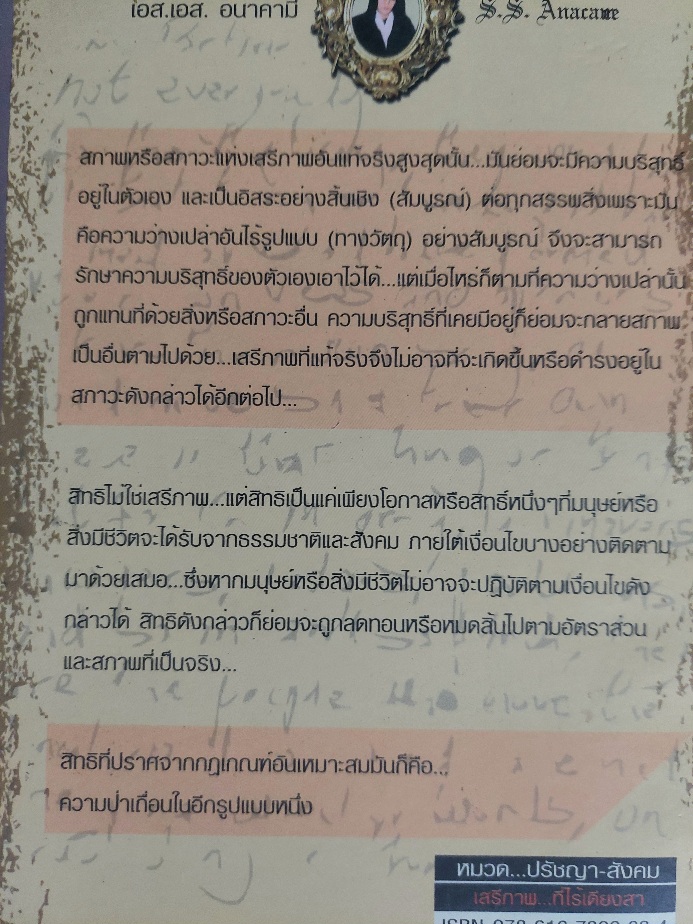 เอส.เอส. อนาคามี
S.S. Anacame
สภาพหรือสภาวะแห่งเสรีภาพอันแท้จริงสูงสุดนั้น...มันย่อมจะมีความบริสุทธิ์
อยู่ในตัวเอง และเป็นอิสระอย่างสิ้นเชิง (สัมบูรณ์) ต่อทุกสรรพสิ่งเพราะมัน
คือความว่างเปล่าอันไร้รูปแบบ (ทางวัตถุ) อย่างสัมบูรณ์ จึงจะสามารถ
รักษาความบริสุทธิ์ของตัวเองเอาไว้ได้...แต่เมื่อไหร่ก็ตามที่ความว่างเปล่านั้น
ถูกแทนที่ด้วยสิ่งหรือสภาวะอื่น ความบริสุทธิ์ที่เคยมีอยู่ก็ย่อมจะกลายสภาพ
เป็นอื่นตามไปด้วย...เสรีภาพที่แท้จริงจึงไม่อาจที่จะเกิดขึ้นหรือดำรงอยู่ใน
สภาวะดังกล่าวได้อีกต่อไป...
สิทธิไม่ใช่เสรีภาพ...แต่สิทธิเป็นแค่เพียงโอกาสหรือสิทธิ์หนึ่งๆที่มนุษย์หรือ
สิ่งมีชีวิตจะได้รับจากธรรมชาติและสังคม ภายใต้เงื่อนไขบางอย่างติดตาม
มาด้วยเสมอ...ซึ่งหากมนุษย์หรือสิ่งมีชีวิตไม่อาจจะปฏิบัติตามเงื่อนไขดัง
กล่าวได้ สิทธิดังกล่าวก็ย่อมจะถูกลดทอนหรือหมดสิ้นไปตามอัตราส่วน
และสภาพที่เป็นจริง...
สิทธิที่ปราศจากกฎเกณฑ์อันเหมาะสมมันก็คือ...
ความป่าเถื่อนในอีกรูปแบบหนึ่ง
หมวด...ปรัชญา-สังคม
เสรีภาพ...ที่ไร้เดียงสา